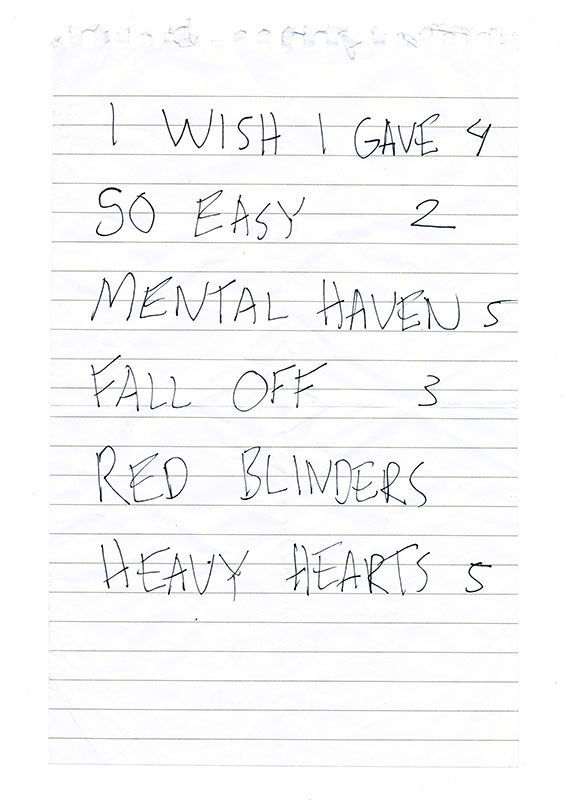 I WISH I GAVE 4
SO EASY 2
MENTAL HAVEN 5
FALL OFF 3
RED BLINDERS
HEAVY HEARTS 5